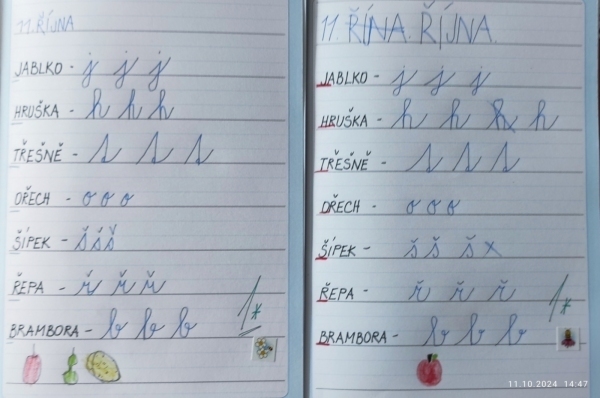 11. ŘÍJNA
JABLKO - j j j
HRUŠKA - h h h
TŘEŠNĚ - t t t
OŘECH - o o o
ŠÍPEK - š š š
ŘEPA - ř ř ř
BRAMBORA - b b b
1*
11. ŘÍNA. ŘÍJNA.
JABLKO - j j j
HRUŠKA - h h h h
TŘEŠNĚ - t t t
OŘECH - o o o
ŠÍPEK - š š š x
ŘEPA - ř ř ř
BRAMBORA - b b b
1*
11.10.2024 14:47